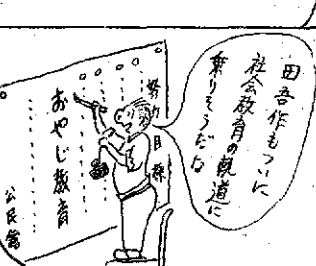 田吾作もついに
社会教育の軌道に
乗りそうだな
努力目標
おやじ教育
公民館